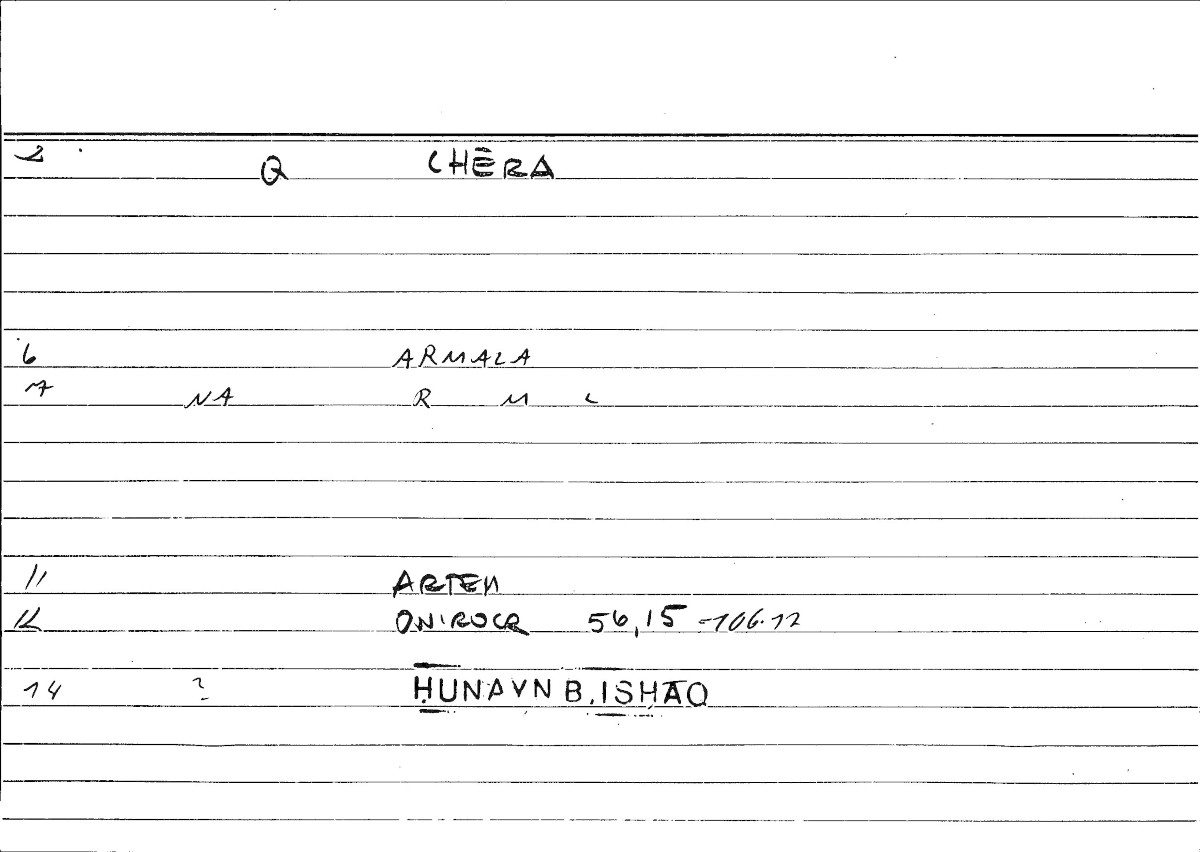 2 Q CHĒRA
6 ARMALA
7 NA R M L
11 ARTEM
12 ONIROCR 56,15 -106.12
14 ? ḤUNAYN B. ISḤĀQ